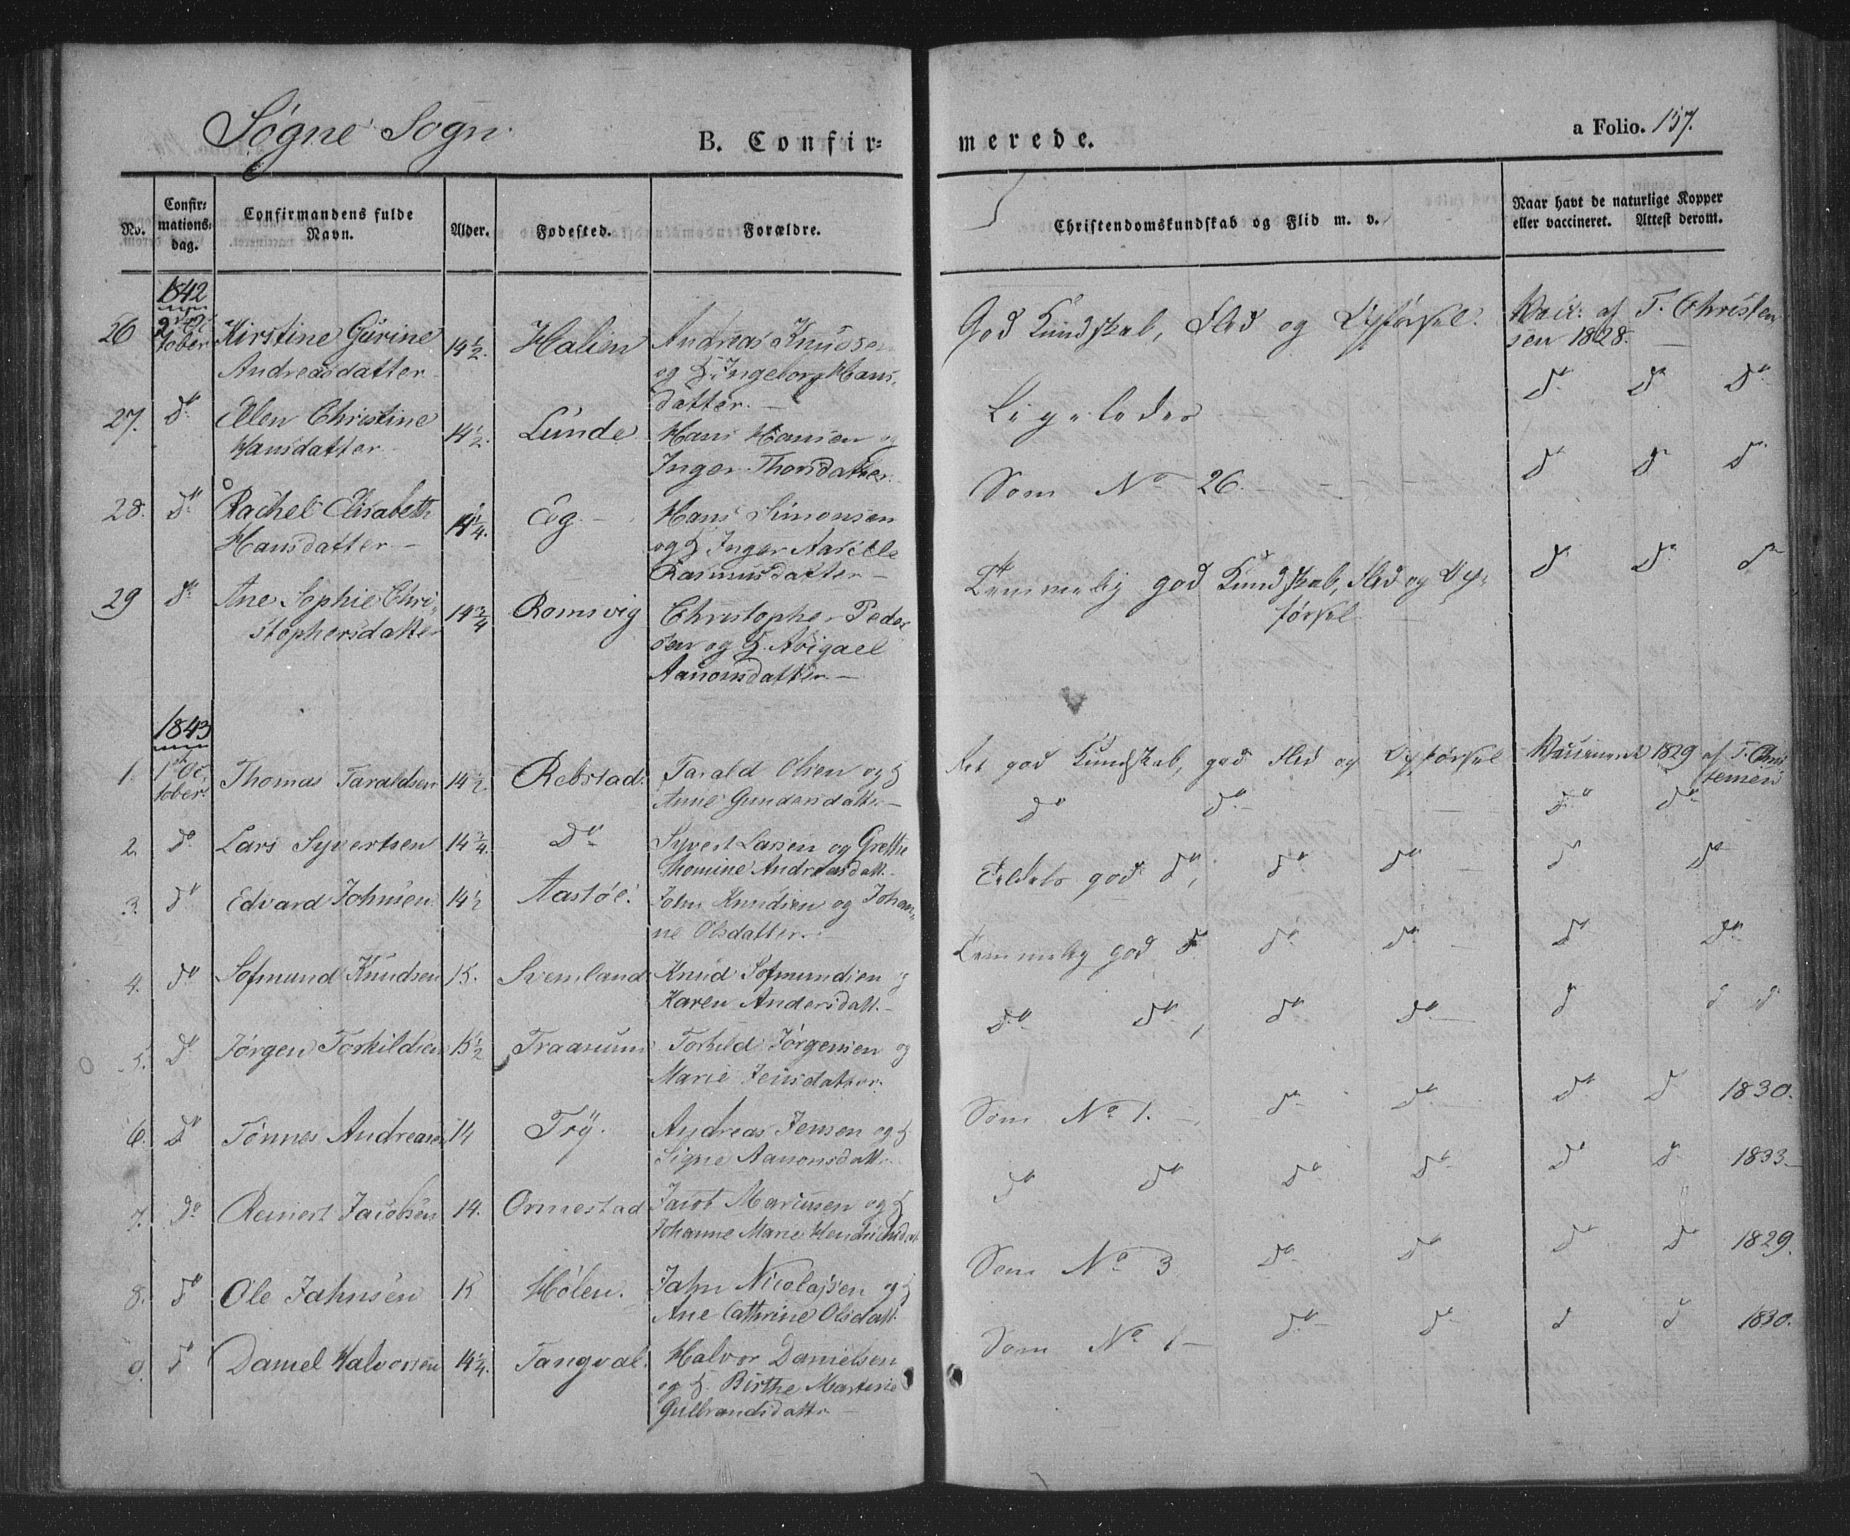 Søgne Sogn.
B. Confirmerede.
a Folio. 157.
No.
Confir-
mations-
dag.
Confirmandens fulde
Navn.
Alder.
Fødested.
Forældre.
Christendomskundskab og Flid m. v.
Naar havt de naturlige Kopper
eller vaccineret. Attest derom.
1842
26 2den October Kirstine Gurine 14½. Halien Andreas Knudsen God Kundskab, Flid og Opførsel. Vacc. af T. Christen
Andreasdatter og H. Ingeborg Hans- sen 1828.
datter.
27. do Ellen Christine 14½. Lunde Hans Hansen og Ligeledes do do do
Hansdatter Inger Thorsdatter
28. do Rachel Elisabeth 14¼. Eg. Hans Simonsen Som No 26. do do do
Hansdatter og H Inger Aasille
Rasmusdatter
29 do Ane Sophie Chri- 14¾ Romsvig Christopher Peder Temmelig god Kundskab, Flid og Op- do do do
stophersdatter sen og H. Abigael førsel
Aanonsdatter
1843
1. 1ste October Thomas Taraldsen 14½ Rebstad. Tarald Olsen og H Ret god Kundskab, god Flid og Opførsel Vaccineret 1829 af T. Chris
Anne Gundersdattr. tensen
2. do Lars Syvertsen 14¾. Do Syvert Larsen og Grethe do do do do
Thomine Andreasdatt.
3. do Edvard Johnsen 14½ Aastøl. John Knudsen og Johan- god do, do do do do
ne Olsdatter.
4. do Sofmund Knudsen 15. Svenland Knud Sofmundsen og Temmelig god do do do do do
Karen Andersdatt.
5. do Jørgen Torkildsen 15½ Traanum Torkild Jørgensen og do do, do do d d d
Marie Jensdatter.
6. do Tønnes Andreasen 14 Try. Andreas Jensen og H Som No 1. do do do d 1830.
Signe Aanonsdatt.
7. do Reinert Jacobsen 14. Ormestad Jacob Marcusen og H do do do do do d 1833
Johanne Marie Hendrichsdatt
8. do Ole Jahnsen 15 Hølen. Jahn Nicolajsen og H Som No 3 do do do do 1829.
Ane Cathrine Olsdatt.
9. do Daniel Halvorsen 14¼. Tangval. Halvor Danielsen Som No 1 do do d d 1830.
og H. Birthe Martine
Gulbrandsdattr.